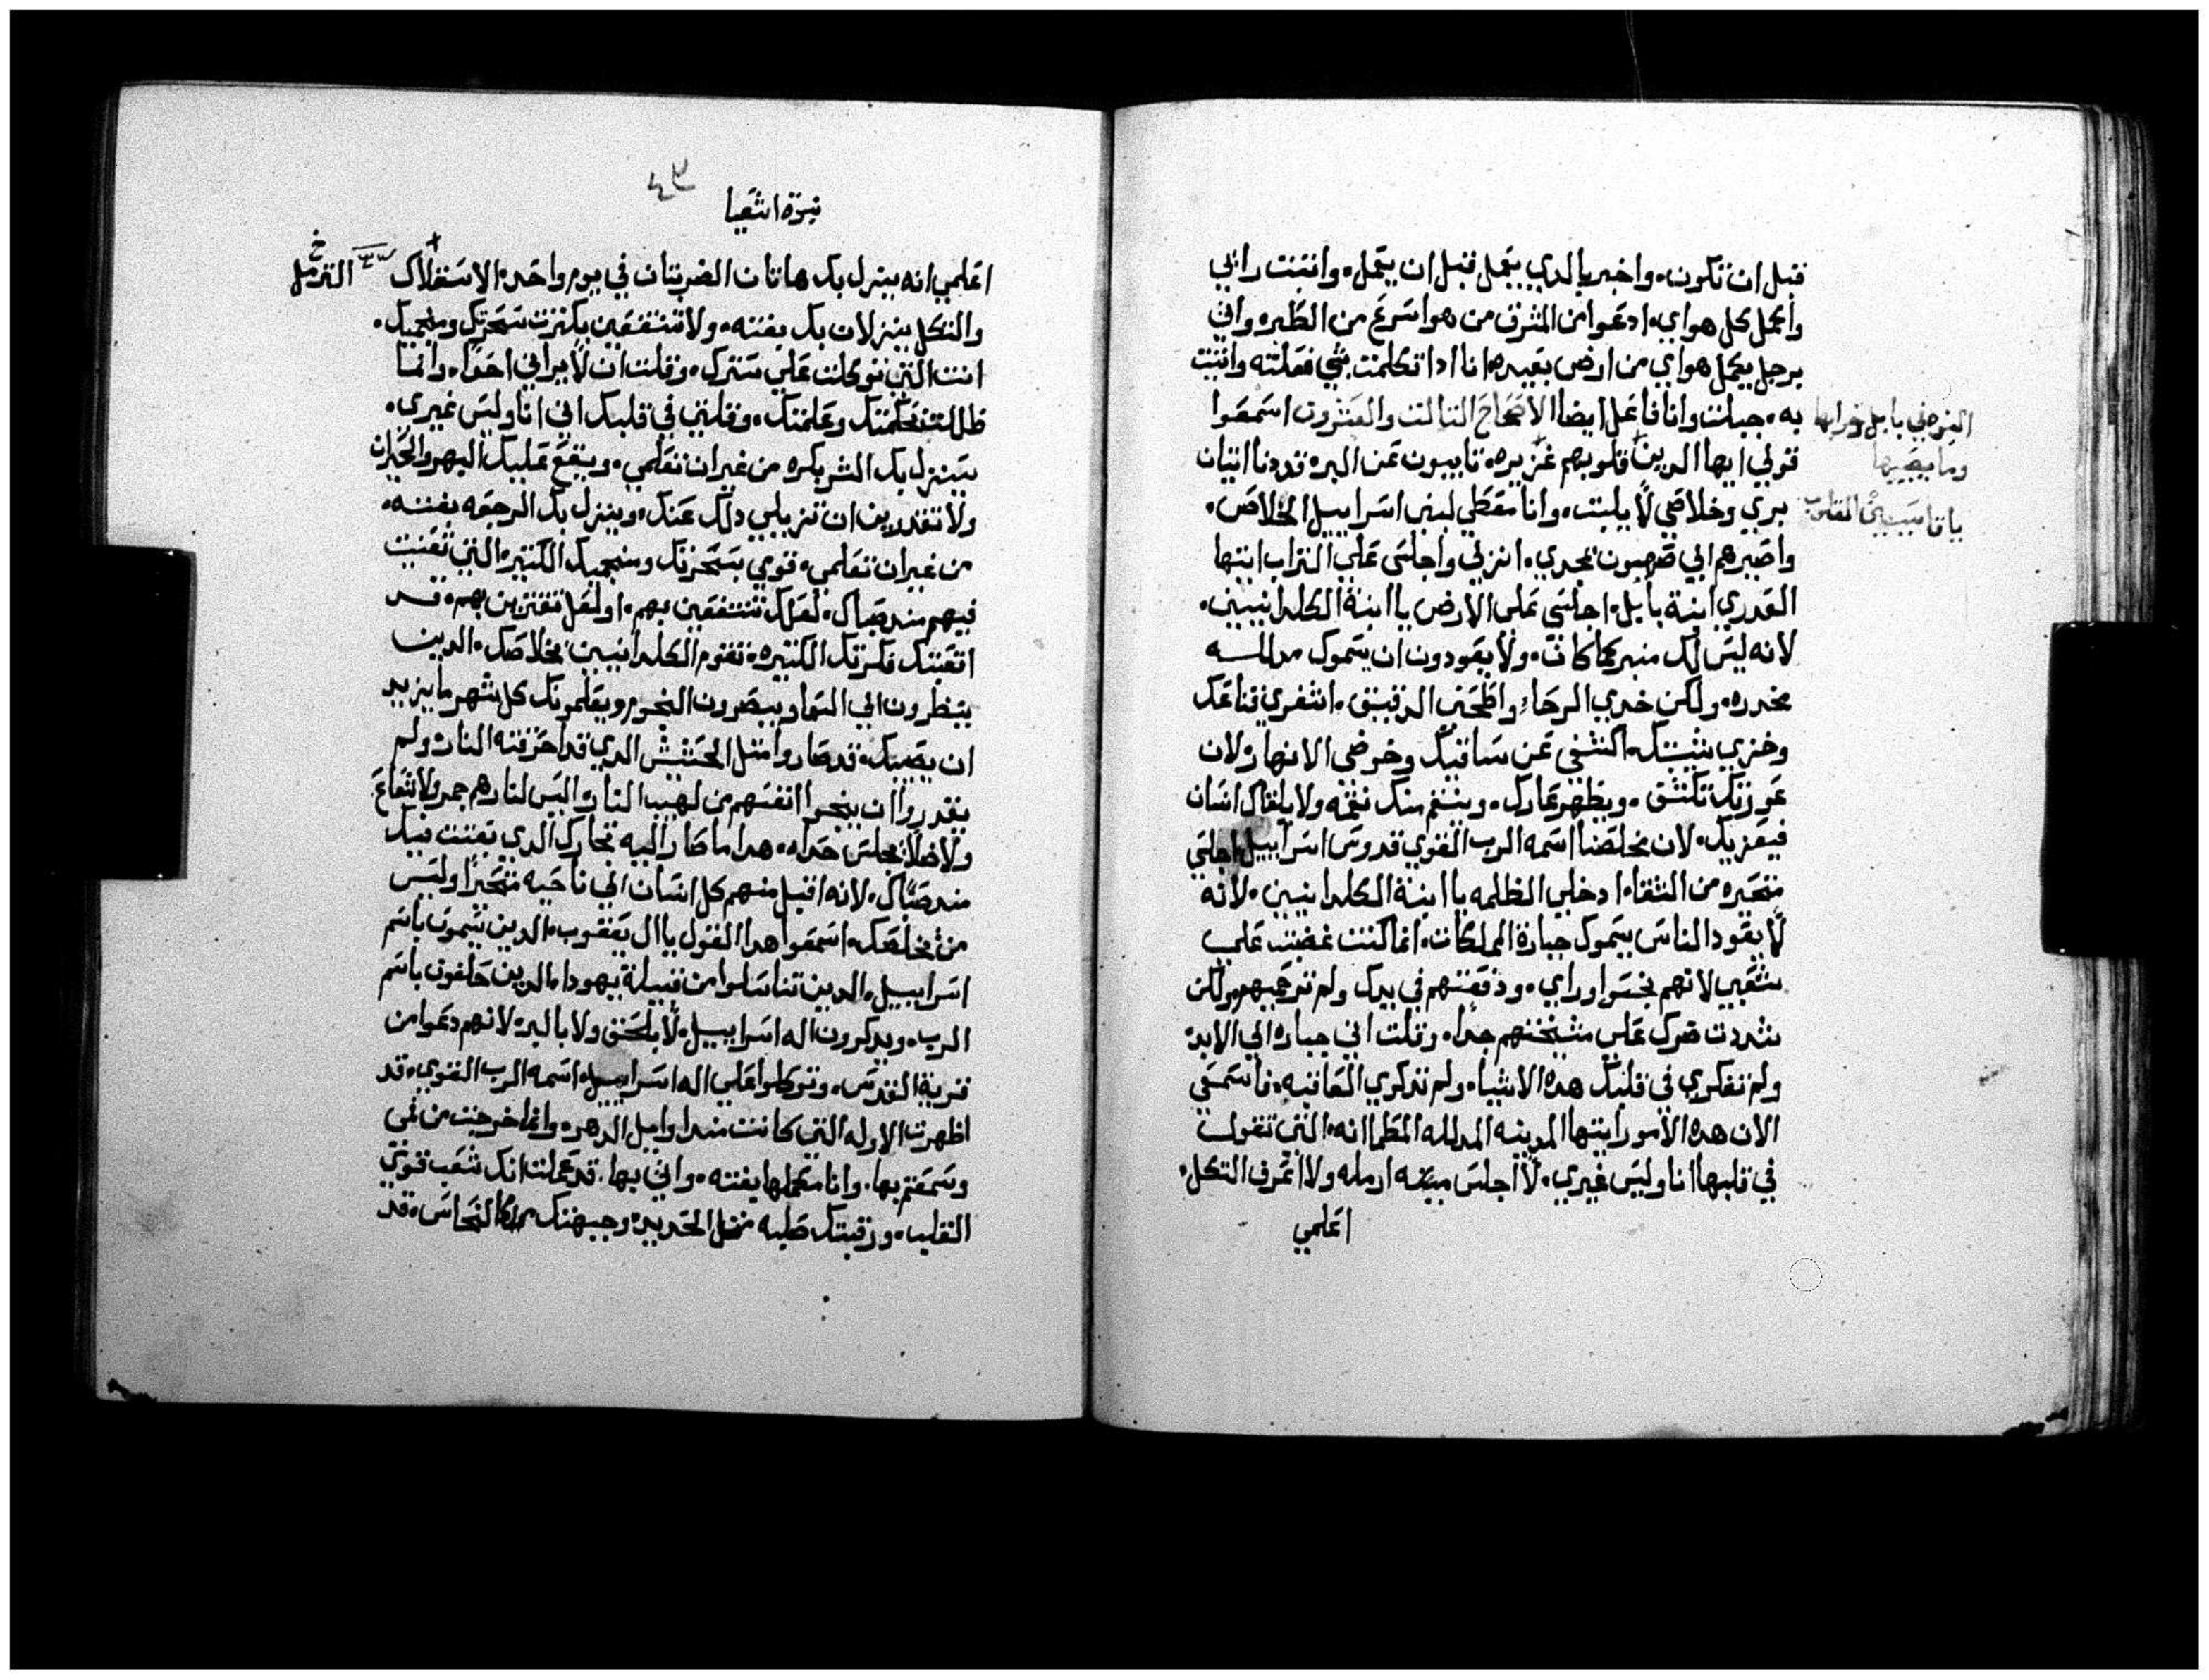 قبل ان تكون. واخبر بالدي يعمل قبل ان يعمل. واثبت رايي
واعمل كل هواي. ادعوا من المشرق من هو اسرع من الطير. واتي
برجل يعمل هواي من ارض بعيده. انا ادا تكلمت بشي فعلته واتيت
به. جبلت وانا فاعل ايضا الاصحاح التالت والعشرون اسمعوا
قولي ايها الدين قلوبهم غزيره. تايبون عن البر. قد دنا اتيان
بري وخلاصي لا يلبت. وانا معطي لبني اسراييل الخلاص.
واصيرهم الي صهيون بمجدي. انزلي واجلسي علي التراب ايتها
العدري ابنة بابل. اجلسي علي الارض يا ابنة الكلدانيين.
لانه ليس لك منبر كما كان. ولا يعودون ان يسموك مدللـه
مخدره. ولكن خدي الرحاء واطحني الدقيق. انتفري قناعك
وخزي شيبتك. اكشفي عن ساقيك وخوضي الانهار. لان
عورتك تكشق. ويظهر عارك. وينتقم منك نقمه ولا يلقاك انسان
فيعزيك. لان مخلصنا اسمه الرب القوي قدوس اسراييل اجلسي
متحيره من الشقاء. ادخلي الظلمه يا ابنة الكلدانيين. لانه
لا يعود الناس يسموك جبارة المملكات. انما كنت غضبت علي
شعبي لانهم نجسوا وراي. ودفعتهم في يدك ولم ترحميهم. ولكن
شددت ضرك علي مشيختهم جدا. وقلت اني جباره الي الابد
ولم تفكري في قلبك هده الاشياء. ولم تدكري العاقبه. فاسمعي
الان هده الامور ايتها المدينه المدلله المطماانه. التي تقول
في قلبها انا وليس غيري. لا اجلس ارمله ولا اعرف التكل.
اعلمي
النبوه في بابل وخرابها
وما يصيبها
نبوة اشعيا
اعلمي انه ينزل بك هاتان الضربتان في يوم واحد. الاستقلاك الترمل خ
والتكل ينزلان بك بغته. ولا تنتفعين بكترت سحرتك ومنجميك.
انت التي توكلت علي سترك. وقلت ان لا يراني احدا. وانما
ظللت بحكمتك وعلمتك. وقلتي في قلبك اني انا وليس غيري.
سينزل بك الشر بكره من غير ان تعلمي. ويقع عليك البهر والخيزان
ولا تقدرين ان تزيلي دلك عنك. وينزل بك الرجعه بغته.
من غير ان تعلمي. قومي بسحرتك ومنجميك الكتيره التي تعنيت
فيهم مند صباك. لعلك تنتفعين بهم. او لعل تعتزين بهم. قـد
اتعبتك فكرتك الكتيره. تقوم الكلدانيين بخلاصك. الدين
ينظرون الي السما ويبصرون النجوم ويعلمونك كل شهر ما يزيد
ان يصيبك. قد صاروا متل الحشيش الدي قد احرقته النار. ولم
يقدروا ان ينجوا انفسهم من لهيب النار. اليس لنارهم جمر ولا شعاع
ولا ضلا يجلس حداه. هدا ما صار اليه تجارك الدي تعنت فيك
مند صباك. لانه اقبل منهم كل انسان الي ناحيه متحيرا وليس
من يخلصك. اسمعوا هدا القول يا ال يعقوب. الدين يسمون باسم
اسراييل. الدين تناسلوا من قبيلة يهودا. الدين حلفون باسم
الرب. ويدكرون اله اسراييل. لا بالحق ولا بالبر. لانهم دعوا من
قرية القدس. وتوكلوا علي اله اسراييل. اسمه الرب القوي. قد
اظهرت الاوله التي كانت مند اوايل الدهر. وانما خرجت من فمي
وسمعتم بها. وانا مكملها بغته. واتي بها. قد علمت انك شعب قوي
القلب. ورقبتك صلبه متل الحديد. وجبهتك النحاس. قد